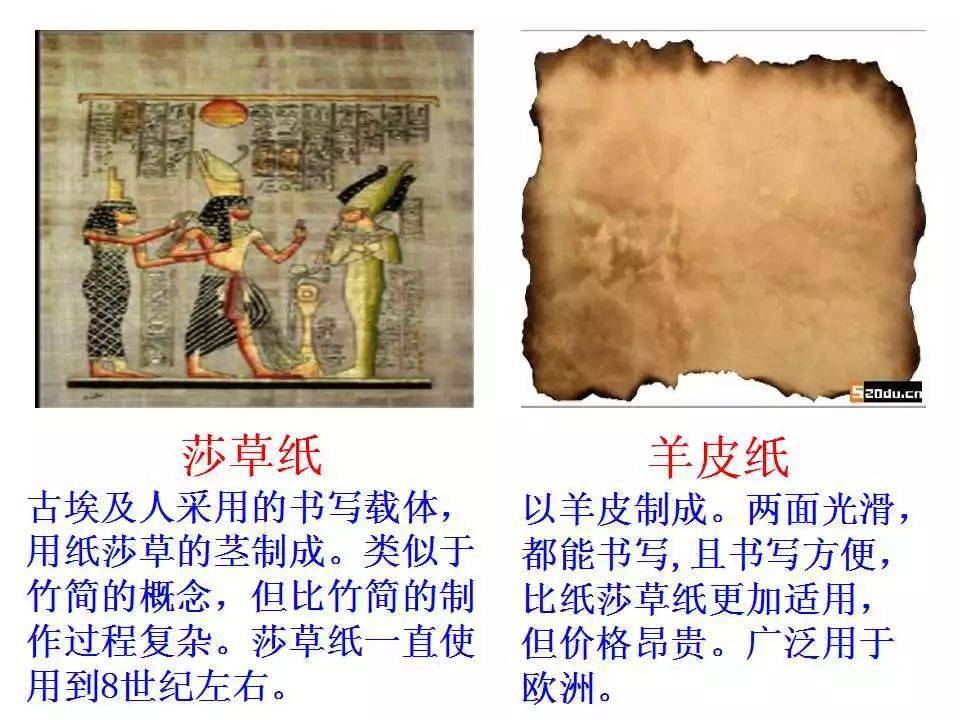 520du.cn
莎草纸
古埃及人采用的书写载体，
用纸莎草的茎制成。类似于
竹简的概念，但比竹简的制
作过程复杂。莎草纸一直使
用到8世纪左右。
羊皮纸
以羊皮制成。两面光滑，
都能书写,且书写方便，
比纸莎草纸更加适用，
但价格昂贵。广泛用于
欧洲。